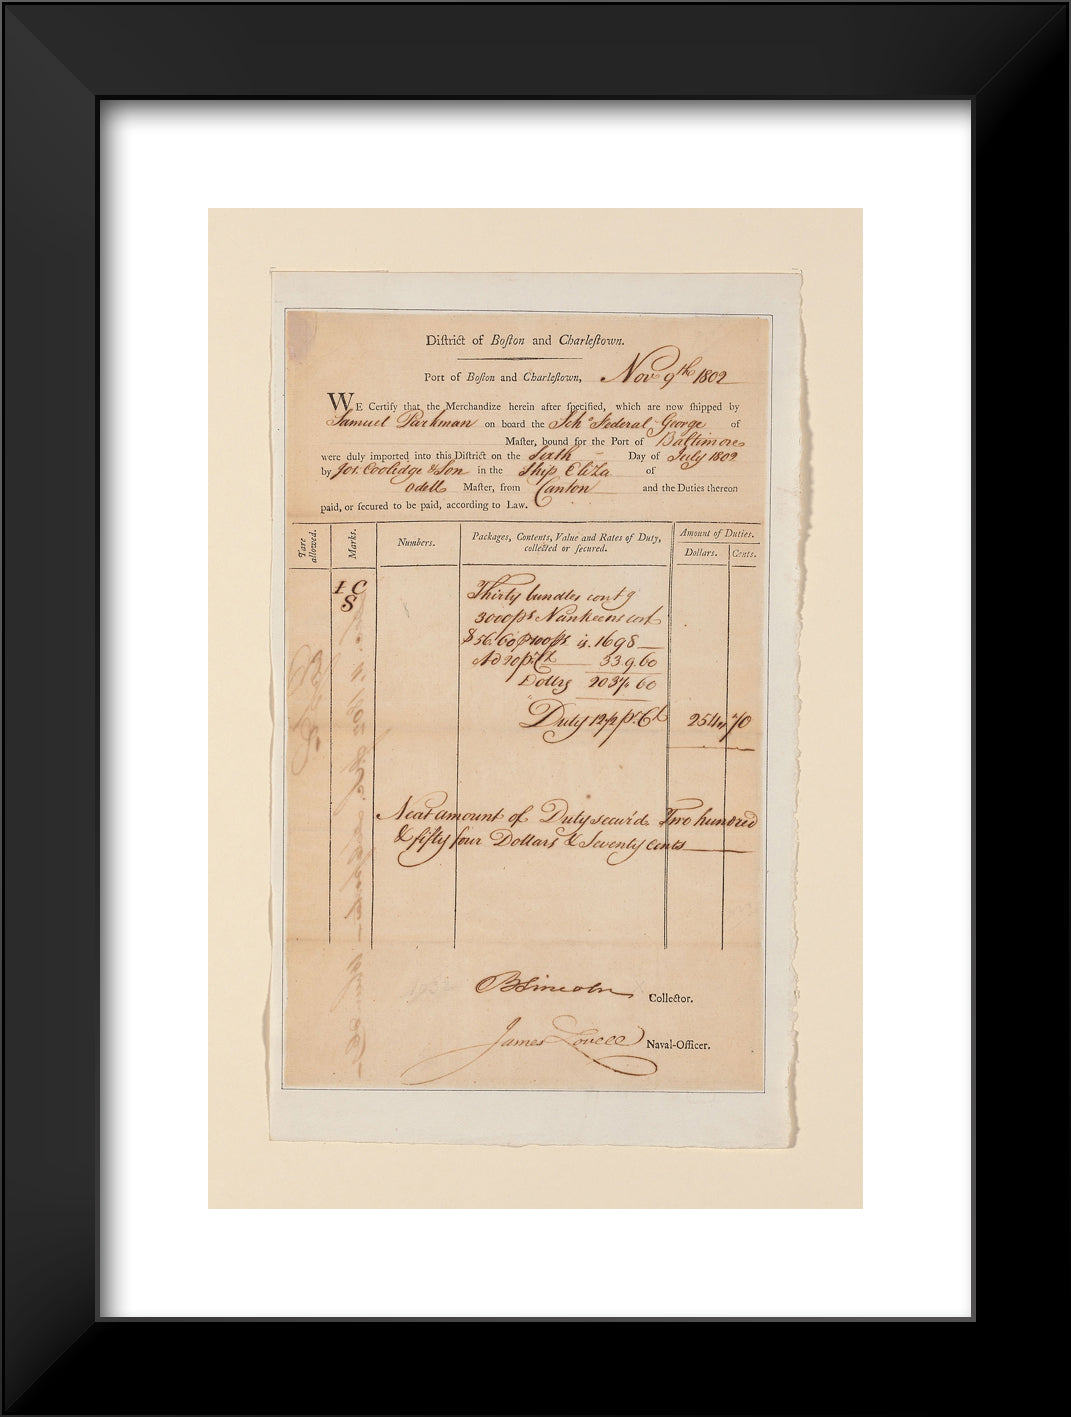 Diſtrict of Boſton and Charleſtown.
Port of Boſton and Charleſtown, Nov 9th 1802
WE Certify that the Merchandize herein after ſpecified, which are now ſhipped by
Samuel Parkman on board the Schr Federal George of
Maſter, bound for the Port of Baltimore
were duly imported into this Diſtrict on the Sixth Day of July 1802
by Jos. Coolidge & Son in the Ship Eliza of
Odell Maſter, from Canton and the Duties thereon
paid, or ſecured to be paid, according to Law.
Tare allowed.
Marks.
Numbers.
Packages, Contents, Value and Rates of Duty,
collected or ſecured.
Amount of Duties.
Dollars. Cents.
I C
S
Thirty bundles contg
3000 ps Nankeens cost
$56.60 p 100 ps is 1698
Ad 20 pr Ct 339.60
Dollrs 2037 60
Duty 12½ pr Ct 254 70
Neat amount of Duty secur'd Two hundred
& fifty four Dollars & Seventy Cents
B Lincoln Collector.
James Lovell Naval-Officer.